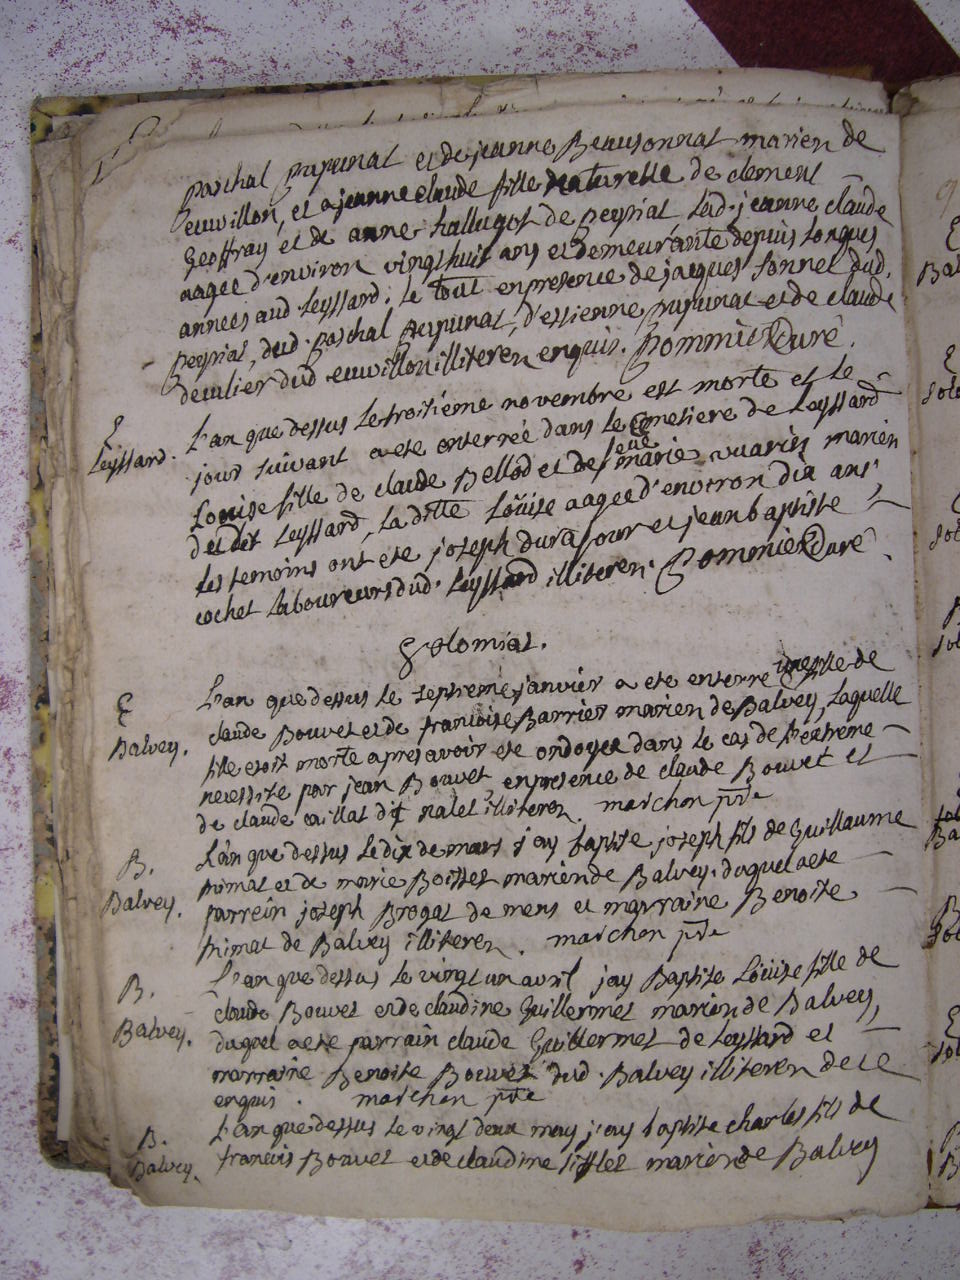 paschal pupunat et de jeanne Beausonnat marien de
euvillon, et a jeanne claude fille naturelle de clement
Geoffray et de anne hallugot de peyriat lad. jeanne claude
aagee d'environ vingt huit ans et demeurante depuis longues
annees aud Leyssard. le tout en presence de jacques sonnet dud.
peyriat, dud. paschal pupunat, d'estienne pupunat et de claude
dud euvillon illiteren enquis. Pommier Curé.
E
Leyssard.
L'an que dessus le troisième novembre est morte et le
jour suivant a ete enterrée dans le Cimetiere de Leyssard
Louise fille de claude Bellod et de feüe marie vuarin marien
dudit Leyssard, La ditte Loüise aagee d'environ dix ans,
les temoins ont ete joseph durafour et jean baptiste
cochet Laboureurs dud. Leyssard illiteren. Pommier Curé.
Solomiat.
E
Balvey.
L'an que dessus le septieme janvier a ete enterre une fille de
claude Bouvet et de francoise Barrier marien de Balvey, Laquelle
fille etoit morte apres avoir ete ondoyee dans le cas de l'extreme
necessite par jean Bouvet en presence de claude Bouvet et
de claude caillat dit nalet illiteren. marchon ptre
B.
Balvey.
L'an que dessus le dix de mars j'ay baptise joseph fils de Guillaume
primat et de marie Boisset marien de Balvey. duquel a ete
parrein joseph Brogat de mens et marraine Benoite
primat de Balvey illiteren. marchon ptre
B.
Balvey.
L'an que dessus le vingt un avril jay Baptise Loüise fille de
claude Bouvet et de claudine Guillermet marien de Balvey,
duquel a ete parrain claude Guillermet de Leyssard et
marraine Benoite Bouvet dud. Balvey illiteren de ce
enquis. marchon ptre
B.
Balvey.
L'an que dessus le vingt deux may j'ay baptise charles fils de
francois Bouvet et de claudine sifflet marien de Balvey